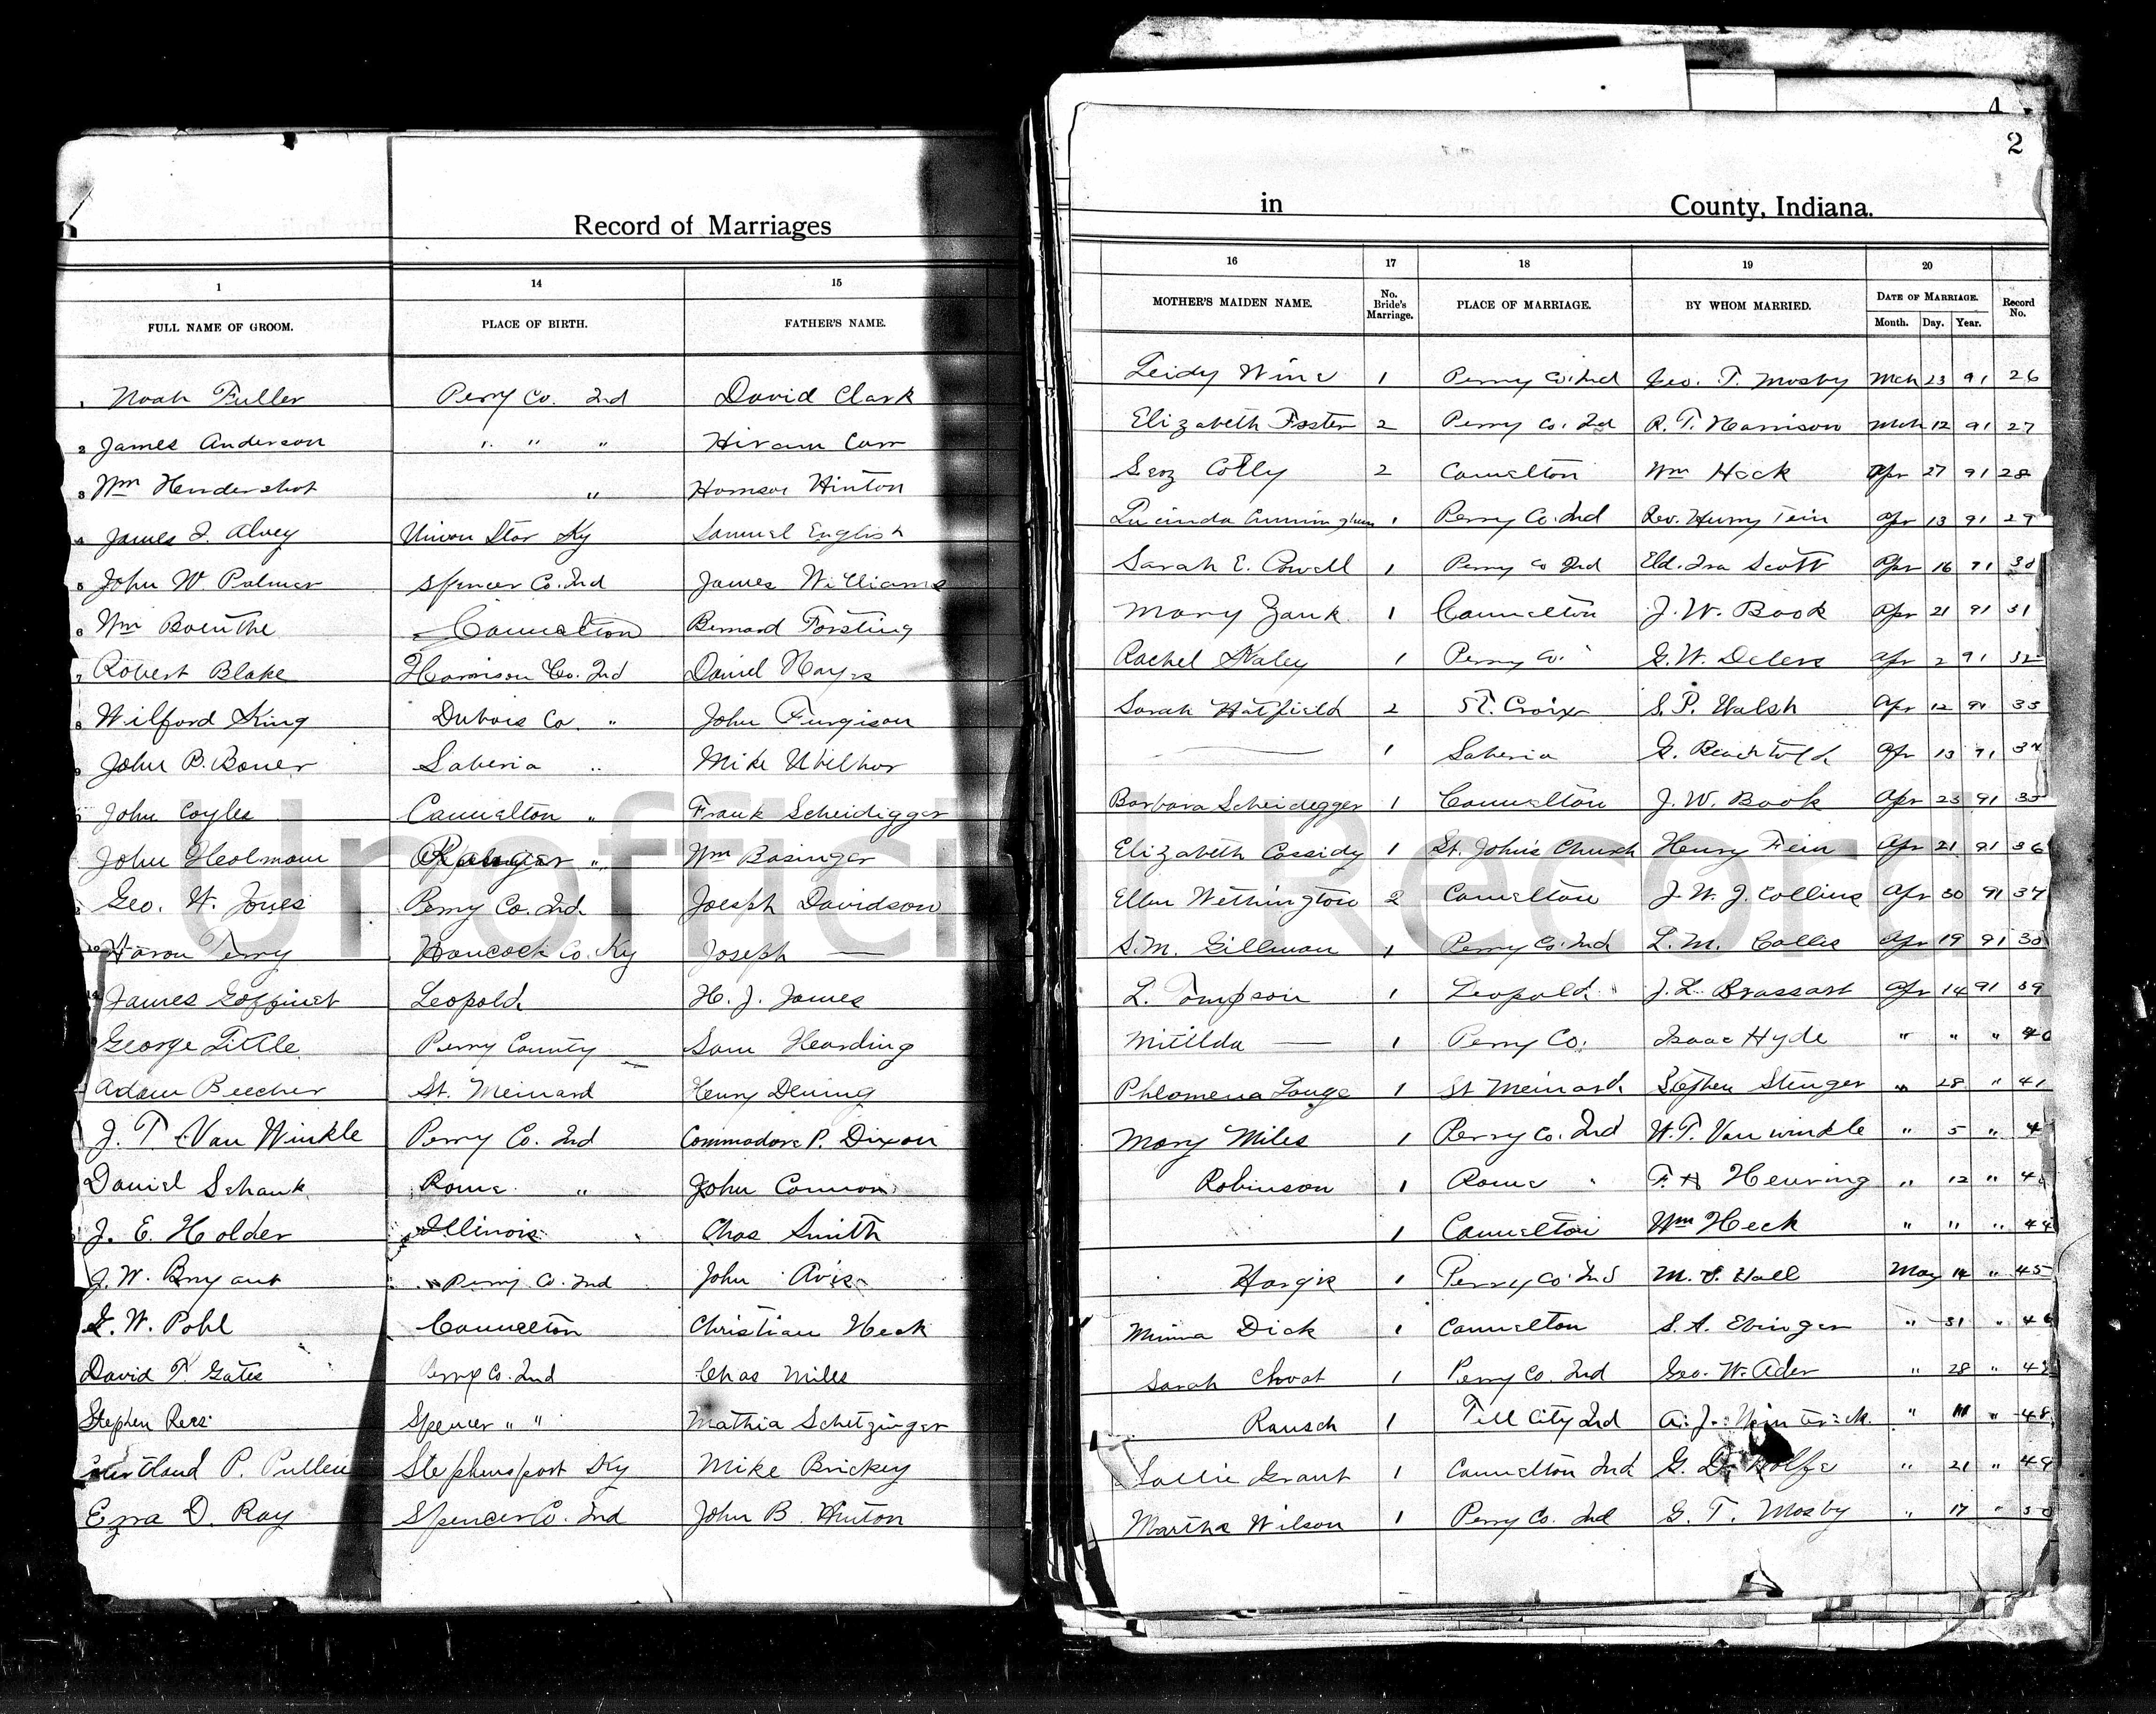 4
2
Record of Marriages in County, Indiana.
1 14 15 16 17 18 19 20
FULL NAME OF GROOM. PLACE OF BIRTH. FATHER'S NAME. MOTHER'S MAIDEN NAME. No. Bride's Marriage. PLACE OF MARRIAGE. BY WHOM MARRIED. DATE OF MARRIAGE. Month. Day. Year. Record No.
1 Noah Fuller Perry Co. Ind David Clark Leidy Wine 1 Perry Co. Ind Geo. T. Mosby Mch 23 91 26
2 James Anderson " " " Hiram Carr Elizabeth Foster 2 Perry Co. Ind R. T. Harrison Mch 12 91 27
3 Wm Hendershot " Hinton 2 Cannelton Wm Heck Apr 27 91 28
4 James I. Alvey Union Star Ky Samuel English Lucinda Cunningham 1 Perry Co. Ind Rev. Henry Fein Apr 13 91 29
5 John W. Palmer Spencer Co. Ind James Williams Sarah E. Powell 1 Perry Co Ind Eld. Ira Scott Apr 16 91 30
6 Wm Boenthe Cannelton Bernard Forsting Mary Zank 1 Cannelton J. W. Book Apr 21 91 31
7 Robert Blake Harrison Co. Ind Daniel Hayes Rachel Haley 1 Perry Co. " G. W. Delers Apr 2 91 32
8 Wilford King Dubois Co. " John Furgison Sarah Hatfield 2 St. Croix S. P. Walsh Apr 12 91 33
9 John B. Boner Saberia " Mike Uhelhor 1 Saberia G. Apr 13 91 34
John Coyles Cannelton " Frank Scheidigger Barbara Scheidegger 1 Cannelton J. W. Book Apr 23 91 35
John Heolmann " Wm Basinger Elizabeth Cassidy 1 St. John's Church Henry Fein Apr 21 91 36
Geo. W. Jones Perry Co. Ind. Joesph Davidson Ellen Wethington 2 Cannelton J. W. J. Collins Apr 30 91 37
Aaron Terry Hancock Co. Ky Joseph — S. M. Gillman 1 Perry Co. Ind L. M. Apr 19 91 38
James Goffinet Leopold H. J. James L. Tompson 1 Leopold " J. L. Brassart Apr 14 91 39
George Little Perry County Sam Hearding Mitilda — 1 Perry Co. Isaac Hyde " " " 40
Adam Beecher St. Meinard Henry Dening Phlomena Lange 1 St Meinard Stephen Stenger " 28 " 41
J. T. Van Winkle Perry Co. Ind Commodore P. Dixon Mary Miles 1 Perry Co. Ind W. T. Van winkle " 5 " 4
Daniel Schank Rome " John Connor Robinson 1 Rome " F. H Henring " 12 " 4
J. E. Holder Illinois Chas Smith 1 Cannelton Wm Heck " " " 44
J. W. Bryant Perry Co. Ind John Avis Hargis 1 Perry Co. Ind M. S. Hall May 14 " 45
G. W. Pohl Cannelton Christian Heck Minna Dick 1 Cannelton S. A. Ebinger " 31 " 46
David T. Gates Perry Co. Ind Chas Miles Sarah Choat 1 Perry Co. Ind Geo. W. Ader " 28 " 4
Stephen Rees Spencer " " Mathia Schetzinger Rausch 1 Tell City Ind A. J. " " 48
P. Pullen Stephensport Ky Mike Brickey Sallie Grant 1 Cannelton Ind G. D. Wolfe " 21 " 49
Ezra D. Ray Spencer Co. Ind John B. Hinton Martha Wilson 1 Perry Co. Ind G. T. Mosby " 17 " 50
Unofficial Record